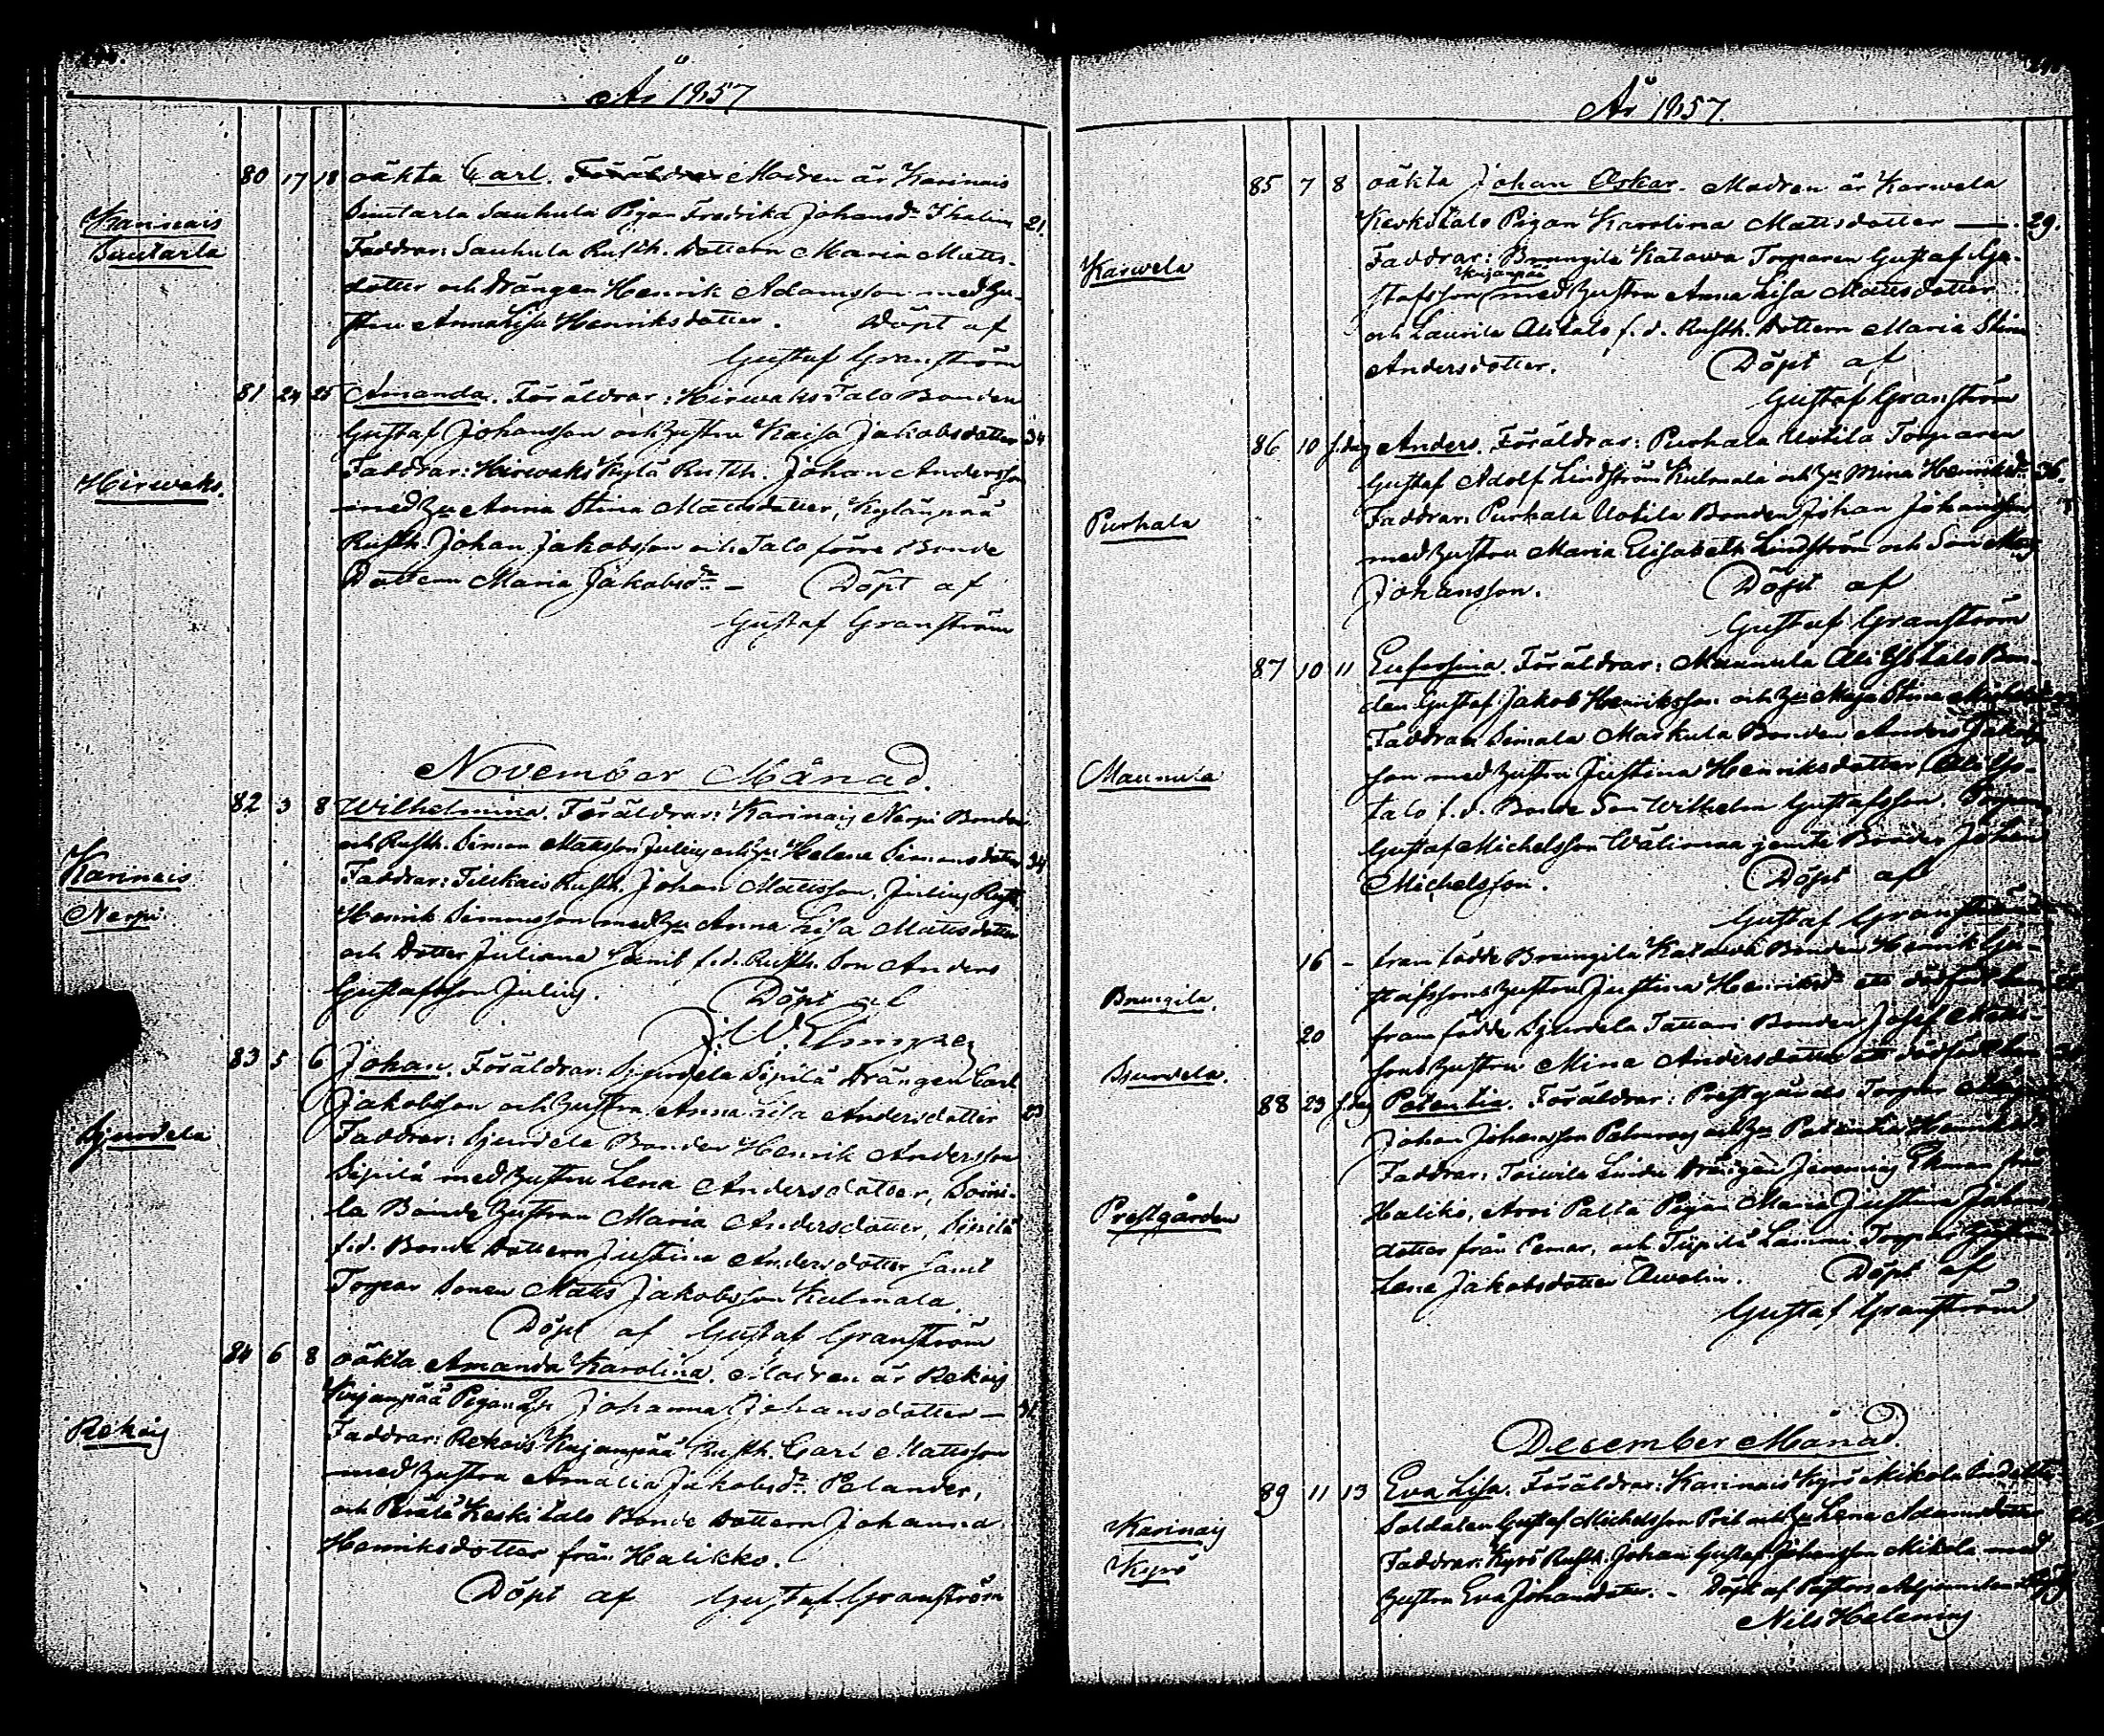 År 1857
80 17 18 oäkta Carl. Föräldrar Modren är Karinais
Karinais Suutarla Sauhula Pigan Fredrika Johansdr Thalin 21.
Suutarla Faddrar: Sauhula Rusth. Dottern Maria Matts-
dotter och Drängen Henrik Adamsson med Hu-
stru Anna Lisa Henriksdotter. Döpt af
Gustaf Granström
81 24 25 Amanda. Föräldrar: Hirwaks Talo Bonden
Gustaf Johansson och Hustru Kaisa Jakobsdotter 34
Hirwaks. Faddrar: Hirwaks Kylä Rusth. Johan Andersson
med Hu Anna Stina Mattsdotter, Kylänpää
Rusth. Johan Jakobsson och Talo förre Bonde
Dottern Maria Jakobsdr – Döpt af
Gustaf Granström
November Månad.
82 3 8 Wilhelmina. Föräldrar: Karinais Nerpi Bonden
och Rusth. Simon Mattsson Julius och Hu Helena Simonsdotter 34
Karinais Faddrar: Rusth. Johan Mattsson, Julius Rusth.
Nerpi Henrik Simonsson med Hu Anna Lisa Mattsdotter
och Dotter Juliana samt f.d. Rusth. Son Anders
Gustafsson Julius. Döpt af
83 5 6 Johan. Föräldrar: Sjurdela Sipilä Drängen Carl
Jakobsson och Hustru Anna Lisa Andersdotter
Sjurdela Faddrar: Sjurdela Bonden Henrik Andersson
Sipilä med Hustru Lena Andersdotter, Soini-
la Bonde Hustrun Maria Andersdotter, Sipilä
f.d. Bonde Dottern Justina Andersdotter samt
Torpar Sonen Matts Jakobsson Kulmala.
Döpt af Gustaf Granström
84 6 8 oäkta Amanda Karolina. Modren är Rekois
Kujanpää Pigan Johanna Johansdotter — 31
Rekois Faddrar: Rekois Kujanpää Rusth. Carl Mattsson
med Hustru Amalia Jakobsdr Palander,
och Perälä Keskitalo Bonde Dottern Johanna
Henriksdotter från Halikko.
Döpt af Gustaf Granström
År 1857.
85 7 8 oäkta Johan Oskar. Modren är Karwela
Keskitalo Pigan Karolina Mattsdotter — 29.
Karwela Faddrar: Brungila Katawa Torparen Gustaf Gu-
stafsson Kujanpää med Hustru Anna Lisa Mattsdotter
och Laurila Alitalo f.d. Rusth. Dottern Maria Stina
Andersdotter. Döpt af
Gustaf Granström
86 10 s.dag Anders. Föräldrar: Purhala Uotila Torparen
Gustaf Adolf Lindström Kulmala och Hu Mina Henriksdr 36.
Purhala Faddrar: Purhala Uotila Bonden Johan Johansson
med Hustru Maria Elisabeth Lindström och Son
Johansson. Döpt af
Gustaf Granström
87 10 11 Eufrosina. Föräldrar: Maunula Ali Yötalo Bon-
den Gustaf Jakob Henriksson och Hu Maja Stina
Faddrar: Simala Markula Bonden Anders Jakobs-
Maunula son med Hustru Justina Henriksdotter,
talo f.d. Bonde Son Wilhelm Gustafsson,
Gustaf Michelsson Wälimaa jemte Bonden Johan
Michelsson. Döpt af
Gustaf Granström
16 – framfödde Brungila Katawa Bonden Henrik Gu-
Brungila. stafssons Hustru Justina Henriksdr ett dödfödt
20 framfödde Sjurdela Tattari Bonden Josef Matts-
Sjurdela. sons Hustru Mina Andersdotter ett dödfödt
88 23 s.dag Potentia. Föräldrar: Prestgårds Torpar
Johan Johansson Palmroos och Hu Potentia
Faddrar: Toiwila Drängen Jeremias Ekman från
Prestgården Haliko, Arvi Palta Pigan Maria Justina Johans-
dotter från Pemar, och Tiipilä Lammi Torpar
Lena Jakobsdotter Awelin. Döpt af
Gustaf Granström
December Månad.
89 11 13 Eva Lisa. Föräldrar: Karinais Kyrö Mikola
Karinais Soldaten Gustaf Michelsson Pril och Hu Lena Adamsdotter
Kyrö Faddrar: Kyrö Rusth. Johan Gustaf Johansson Mikola med
Hustru Eva Johansdotter. – Döpt af Pastors Adjuncten
Nils Helenius